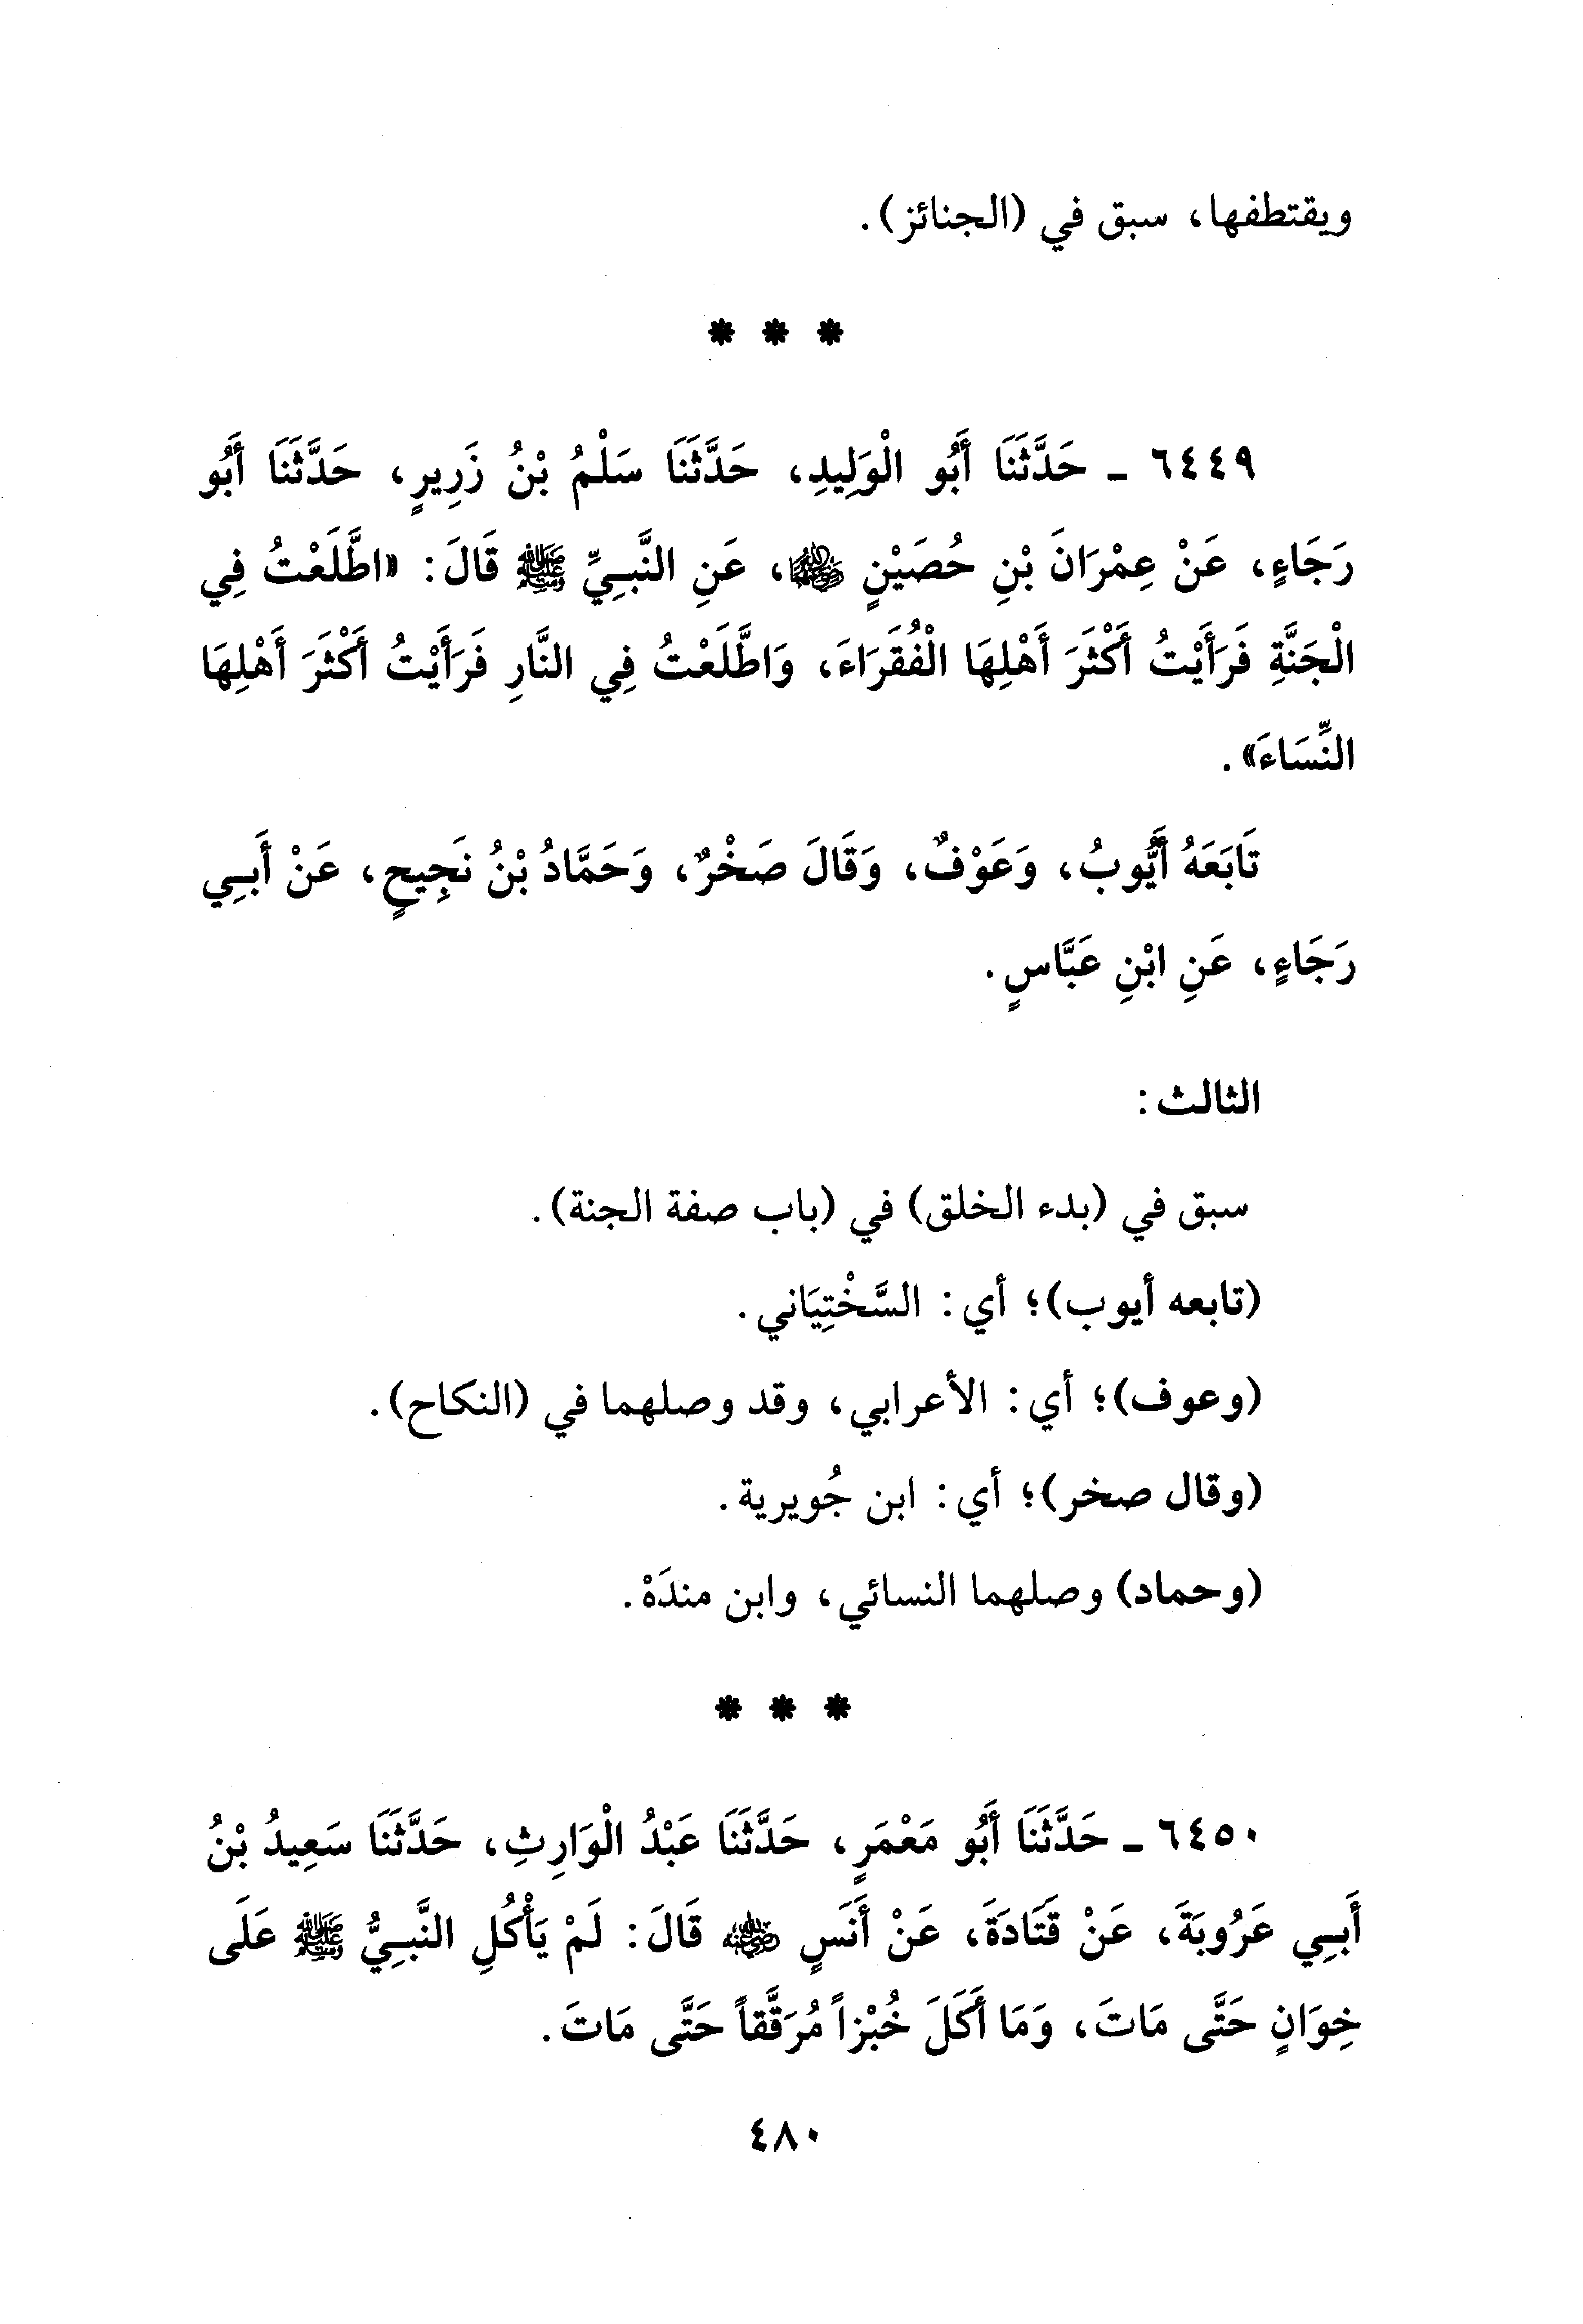 ويقتطفها، سبق في (الجنائز).
* * *
٦٤٤٩ ـ حَدَّثَنَا أَبُو الْوَلِيدِ، حَدَّثَنَا سَلْمُ بْنُ زَرِيرٍ، حَدَّثَنَا أَبُو
رَجَاءٍ، عَنْ عِمْرَانَ بْنِ حُصَيْنٍ ﵄، عَنِ النَّبِيِّ ﷺ قَالَ: «اطَّلَعْتُ فِي
الْجَنَّةِ فَرَأَيْتُ أَكْثَرَ أَهْلِهَا الْفُقَرَاءَ، وَاطَّلَعْتُ فِي النَّارِ فَرَأَيْتُ أَكْثَرَ أَهْلِهَا
النِّسَاءَ».
تَابَعَهُ أَيُّوبُ، وَعَوْفٌ، وَقَالَ صَخْرٌ، وَحَمَّادُ بْنُ نَجِيحٍ، عَنْ أَبِي
رَجَاءٍ، عَنِ ابْنِ عَبَّاسٍ.
الثالث:
سبق في (بدء الخلق) في (باب صفة الجنة).
(تابعه أيوب)؛ أي: السَّخْتِيَاني.
(وعوف)؛ أي: الأعرابي، وقد وصلهما في (النكاح).
(وقال صخر)؛ أي: ابن جُويرية.
(وحماد) وصلهما النسائي، وابن مندَهْ.
* * *
٦٤٥٠ ـ حَدَّثَنَا أَبُو مَعْمَرٍ، حَدَّثَنَا عَبْدُ الْوَارِثِ، حَدَّثَنَا سَعِيدُ بْنُ
أَبِي عَرُوبَةَ، عَنْ قَتَادَةَ، عَنْ أَنَسٍ ﵁ قَالَ: لَمْ يَأْكُلِ النَّبِيُّ ﷺ عَلَى
خِوَانٍ حَتَّى مَاتَ، وَمَا أَكَلَ خُبْزاً مُرَقَّقاً حَتَّى مَاتَ.
٤٨٠